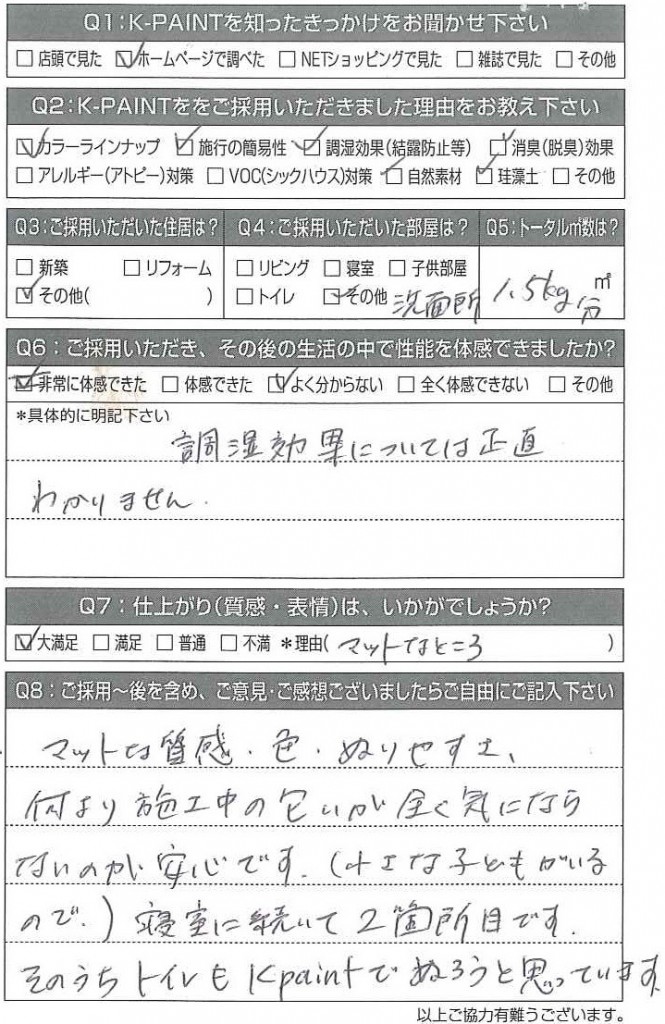 Q1:K-PAINTを知ったきっかけをお聞かせ下さい
□店頭で見た ☑ホームページで調べた □NETショッピングで見た □雑誌で見た □その他
Q2:K-PAINTををご採用いただきました理由をお教え下さい
☑カラーラインナップ ☑施行の簡易性 ☑調湿効果(結露防止等) ☑消臭(脱臭)効果
□アレルギー(アトピー)対策 □VOC(シックハウス)対策 ☑自然素材 ☑珪藻土 □その他
Q3:ご採用いただいた住居は? Q4:ご採用いただいた部屋は? Q5:トータル㎡数は?
□新築 □リフォーム □リビング □寝室 □子供部屋 ㎡
☑その他( ) □トイレ ☑その他 洗面所 1.5kg分
Q6:ご採用いただき、その後の生活の中で性能を体感できましたか?
☑非常に体感できた □体感できた ☑よく分からない □全く体感できない □その他
*具体的に明記下さい
調湿効果については正直
わかりません.
Q7:仕上がり(質感・表情)は、いかがでしょうか?
☑大満足 □満足 □普通 □不満 *理由(マットなところ)
Q8:ご採用～後を含め、ご意見・ご感想ございましたらご自由にご記入下さい
マットな質感・色・ぬりやすさ、
何より施工中の匂いが全く気になら
ないのが安心です.(小さな子どもがいる
ので.)寝室に続いて2箇所目です.
そのうちトイレもKpaintでぬろうと思っています
以上ご協力有難うございます。